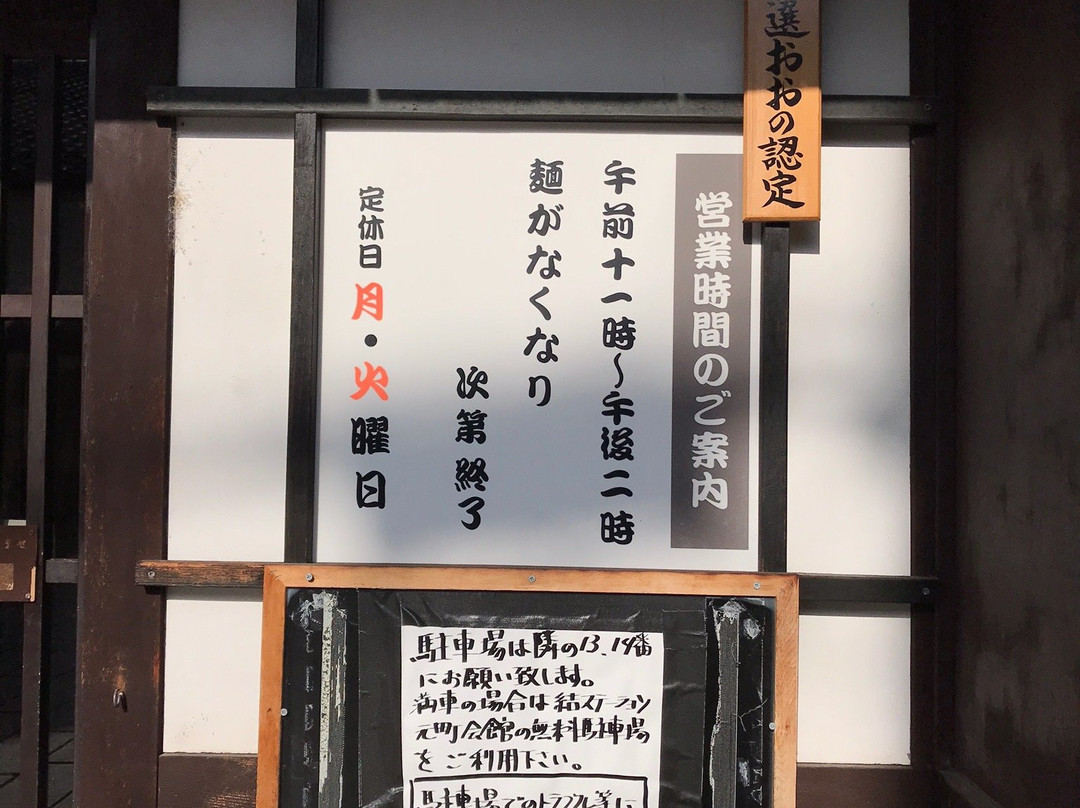 選おおの認定
営業時間のご案内
午前十一時〜午後二時
麺がなくなり
次第終了
定休日 月・火曜日
駐車場は隣の13、14番
にお願い致します。
満車の場合は結ステーション
元町会館の無料駐車場
をご利用下さい。
駐車場でのトラブル等に